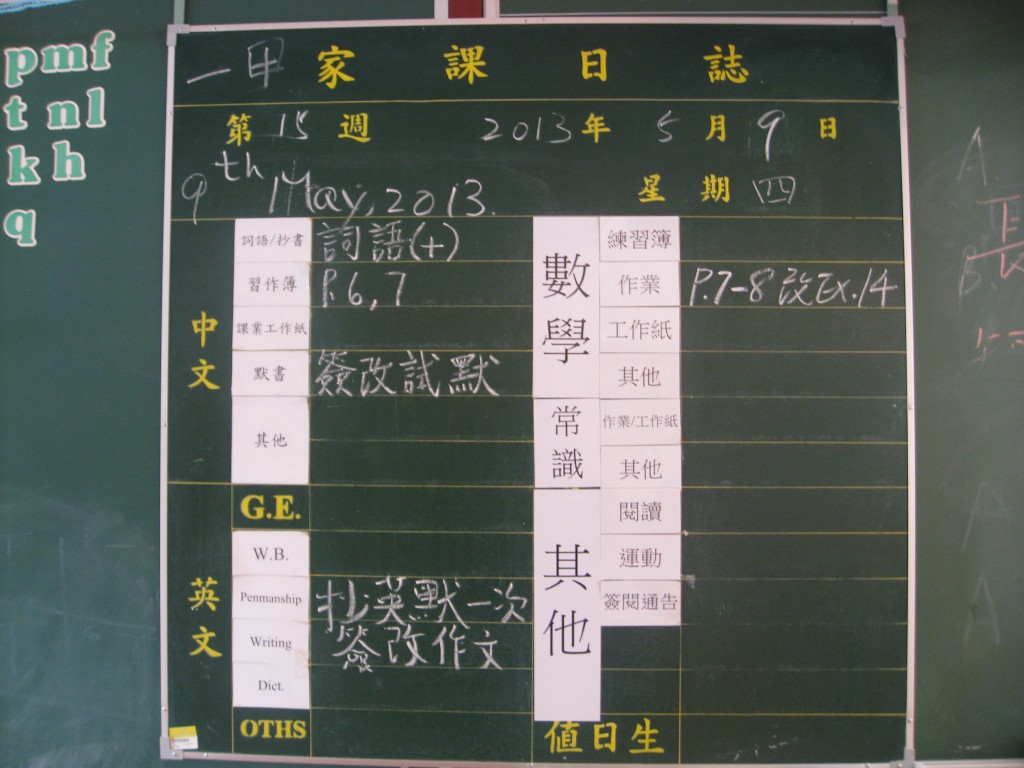 pmf
t nl
k h
q
一甲 家課日誌
第 15 週 2013 年 5 月 9 日
9th May, 2013. 星期 四
中文
詞語/抄書 詞語(+)
習作簿 P.6,7
課業工作紙
默書 簽改試默
其他
英文
G.E.
W.B.
Penmanship 抄英默一次
Writing 簽改作文
Dict.
OTHS
數學
練習簿
作業 P.7-8 改Ex.14
工作紙
其他
常識
作業/工作紙
其他
其他
閱讀
運動
簽閱通告
值日生
A.
B.
A
A